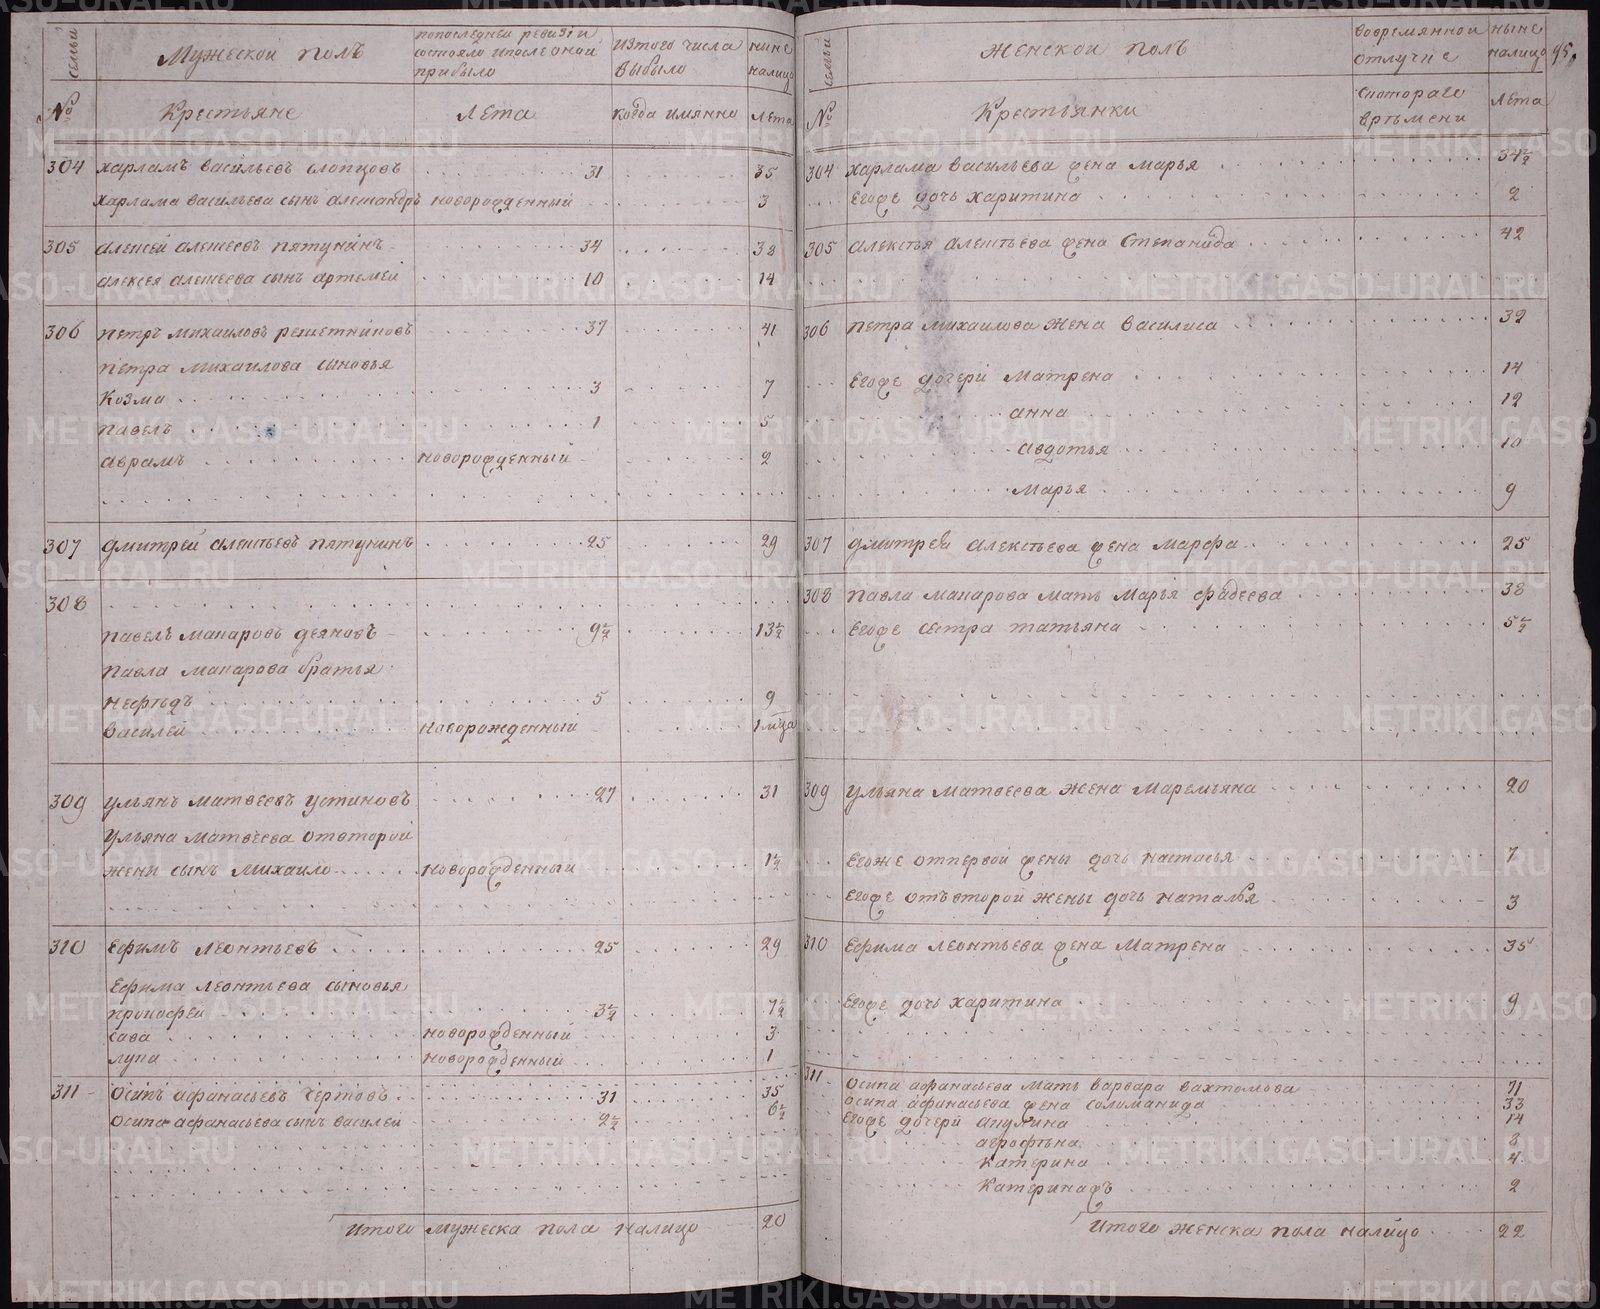 семьи
Мужеской полъ
попоследней ревизіи состояло ипосле оной прибыло
изтого числа выбыло
ныне налицо
№
Крестьяне
Лета
когда имянно
лета
304 харламъ васильевъ слопцовъ 31 35
харлама васильева сынъ александръ новорожденный 3
305 алексей алексеевъ пятунинъ 34 38
алексея алексеева сынъ артемей 10 14
306 петръ михаиловъ решетниковъ 37 41
петра михаилова сыновья
козма 3 7
павелъ 1 5
аврамъ новорожденный 2
307 дмитрей алексѣевъ пятунинъ 25 29
308
павелъ макаровъ деяновъ 9½ 13½
павла макарова братья
нефѣдъ 5 9
василей новорожденный 1 мца
309 ульянъ матвеевъ устиновъ 27 31
ульяна матвеева отвторой
жены сынъ михаило новорожденный 1½
310 ефимъ леонтьевъ 25 29
ефима леонтьева сыновья
прокофей 3½ 7½
сава новорожденный 3
лупа новорожденный 1
311 осипъ афанасьевъ чертовъ 31 35
осипа афанасьева сынъ василеи 2½ 6½
итого мужеска пола налицо 20
семьи
женской полъ
вовременной отлучке
ныне налицо
95.
№
Крестьянки
скотораго времени
лета
304 харлама васильева жена марья 34½
егоже дочь харитина 2
305 алексѣя алексѣева жена степанида 42
306 петра михаилова жена василиса 32
егоже дочери матрена 14
анна 12
авдотья 10
марья 9
307 дмитрея алексѣева жена марфа 25
308 павла макарова мать марья фадеева 38
егоже сестра татьяна 5½
309 ульяна матвеева жена маремьяна 20
егоже отпервой жены дочь настасья 7
егоже отъвторой жены дочь наталья 3
310 ефима леонтьева жена матрена 35
егоже дочь харитина 9
311 осипа афанасьева мать варвара вахтомова 71
осипа афанасьева жена соломанида 33
егоже дочери акулина 14
агрофѣна 8
катерина 4
катеринажъ 2
итого женска пола налицо 22
METRIKI.GASO-URAL.RU